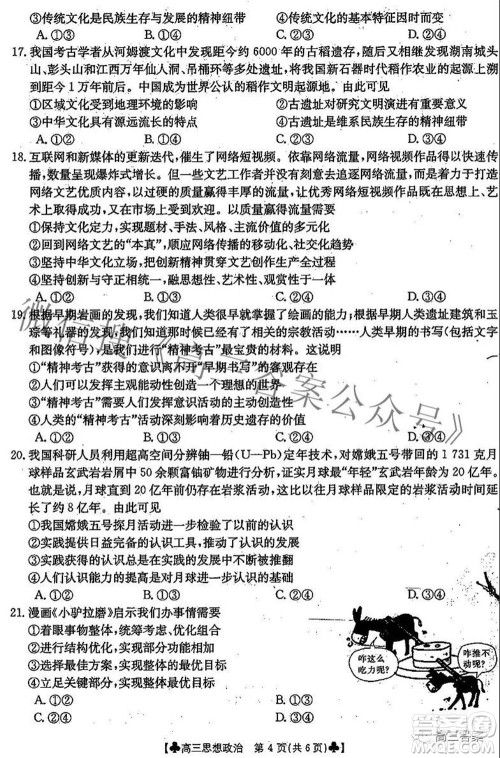 ③传统文化是民族生存与发展的精神纽带　④传统文化的基本特征因时而变
A.①③　B.①④　C.②③　D.②④
17.我国考古学者从河姆渡文化中发现距今约 6000 年的古稻遗存，随后又相继发现湖南城头
山、彭头山和江西万年仙人洞、吊桶环等多处遗址，将我国新石器时代稻作农业的起源上溯
到距今 1 万年前后。中国成为世界公认的稻作文明起源国。由此可见
①区域文化受到地理环境的影响　②古遗址对研究文明演进有重要价值
③中华文化具有源远流长的特点　④古遗址是维系民族生存的精神纽带
A.①②　B.①③　C.②④　D.③④
18.互联网和新媒体的更新迭代，催生了网络短视频。依靠网络流量，网络短视频作品得以快速传
播，其数量呈现爆炸式增长。但一些文艺工作者并没有刻意去追逐网络流量，而是始终围绕
网络文艺优质内容，以过硬的质量赢得丰厚的流量，让优秀网络短视频作品既在思想上、艺
术上取得成功，又在市场上受到欢迎。以质量赢得流量需要
①保持文化定力，实现题材、手法、风格、主流价值的多元化
②回归网络文艺的“本真”，顺应网络传播的移动化、社交化趋势
③坚持中华文化立场，使一切外来文化中国化、本土化
④坚持创作创新，实现网络文艺思想性、艺术性、观赏性于一体
A.①②　B.①③　C.②④　D.③④
19.根据早期岩画的发现，我们知道人类很早就有了绘画的能力；根据早期人类遗址建筑和玉
琮等礼器的发现，我们知道人类很早就有了相关的宗教活动……人类早期的书写(包括文字
和图像符号)，是我们进行“精神考古”最宝贵的材料。这说明
①“精神考古”获得的意识离不开“早期书写”的客观存在
②人们可以发挥主观能动性创造意识与历史的联系
③“精神考古”需要人们发挥主观能动性和创造性
④“精神考古”的实现程度深刻影响着历史遗存的价值
A.①②　B.①③　C.②④　D.③④
20.我国科研人员利用超高空间分辨铀—铅(U—Pb)定年技术，对嫦娥五号带回的 1 731 克月
球样品玄武岩岩屑中 50 余颗富铀矿物进行分析，证实月球最“年轻”玄武岩年龄为 20 亿年
左右，月球直到 20 亿年前仍存在岩浆活动，比以往月球样品限定的岩浆活动停止时间延长
了约 8 亿年。由此可见
①我国嫦娥五号探月活动证实了以前的认识
②实践提供日益完备的认识工具推动了认识的发展
③实践获得的新发现总是在实践的发展中不断被超越
④人们认识能力的提高是对月球认识进一步深入的重要条件
A.①②　B.①③　C.②④　D.③④
21.漫画《小驴拉磨》启示我们办事情需要
①着眼事物整体，统筹考虑，优化组合
②重视部分功能，实现整体功能最大化
③选择最佳方案，实现整体的最优目标
④立足关键部分，实现整体的最优目标
A.①②　B.①③
C.②④　D.③④
咋这么吃力呢?
咋推不动呢?
♣高三思想政治　第 4 页(共 6 页)♣
微信搜《高三答案公众号》
高三答案